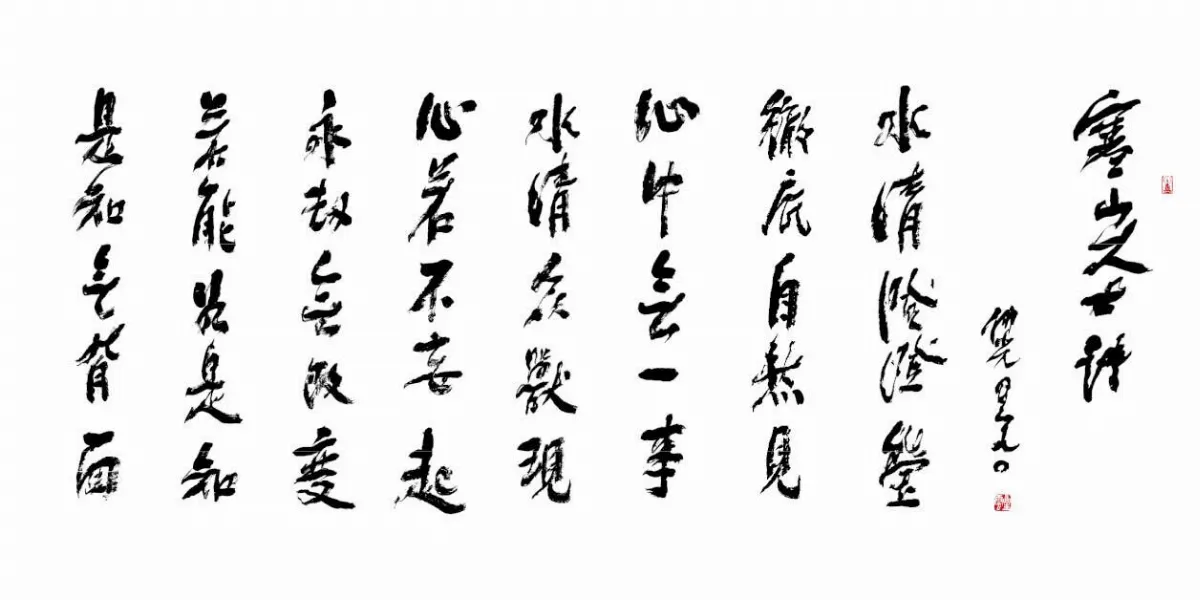 寒山大士詩
水清澄澄瑩
徹底自然見
心中無一事
水清眾獸現
心若不妄起
永劫無改變
若能如是知
是知無背面